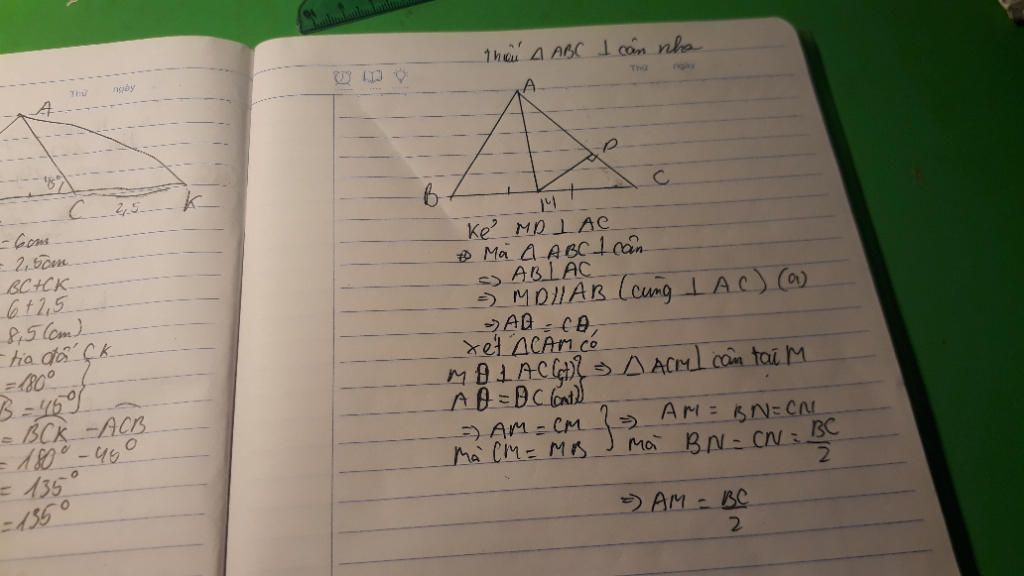 Thứ ngày
A
48°
C 2,5 K
= 6cm
= 2,5cm
BC+CK
6+2,5
8,5 (cm)
tia đối CK
= 180°
B = 45°
= BCK - ACB
= 180° - 45°
= 135°
= 135°
Thiếu Δ ABC ⊥ cân nha
Thứ ngày
A
D
B M C
Kẻ MD ⊥ AC
Mà Δ ABC ⊥ cân
=> AB ⊥ AC
=> MD // AB (cùng ⊥ AC) (a)
=> AD = CD
Xét ΔCAM có
MD ⊥ AC (gt) } => Δ ACM ⊥ cân tại M
AD = DC (cmt)
=> AM = CM } => AM = BN = CN
Mà CM = MB Mà BN = CN = BC/2
=> AM = BC/2